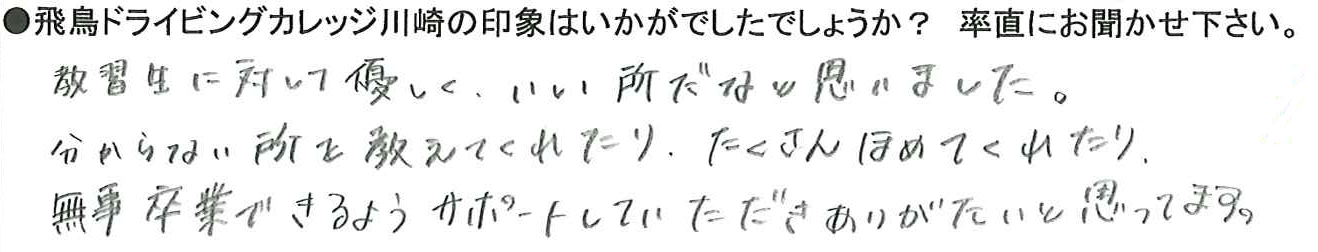 ●飛鳥ドライビングカレッジ川崎の印象はいかがでしたでしょうか？ 率直にお聞かせ下さい。
教習生に対して優しく、いい所だなと思いました。
分からない所を教えてくれたり、たくさんほめてくれたり、
無事卒業できるようサポートしていただきありがたいと思ってます。